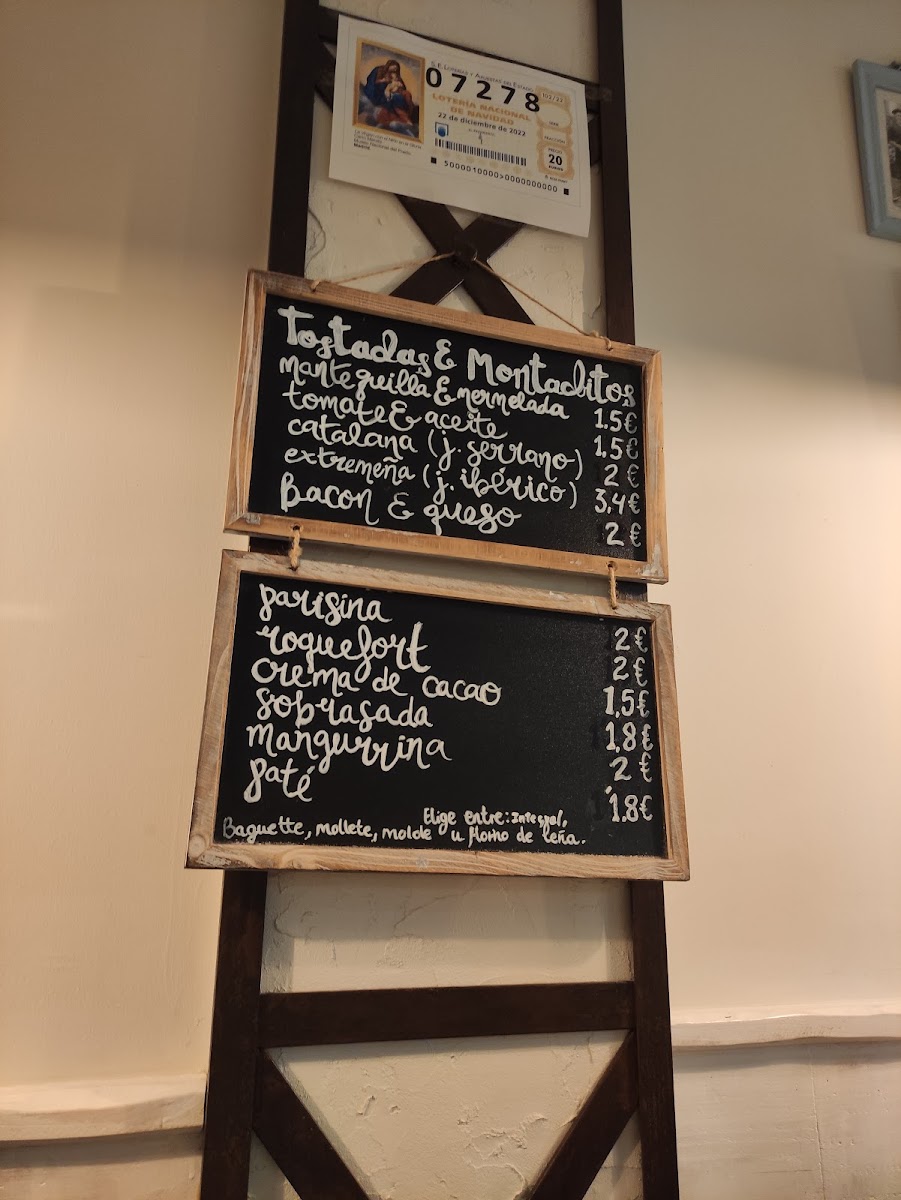 S.E. Loterías y Apuestas del Estado
07278
102/22
LOTERÍA NACIONAL
DE NAVIDAD
22 de diciembre de 2022
20
Museo Nacional del Prado
Madrid
5000010000>0000000000
Tostadas & Montaditos
mantequilla & mermelada 1.5€
tomate & aceite 1.5€
catalana (j. serrano) 2 €
extremeña (j. ibérico) 3,4€
Bacon & queso 2 €
parisina 2€
roquefort 2€
crema de cacao 1,5€
sobrasada 1,8€
mangurrina 2€
paté 1.8€
Elige entre: Integral,
Baguette, mollete, molde u horno de leña.